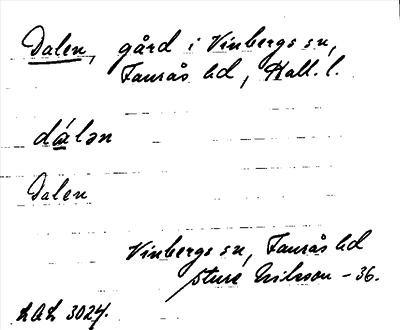 Dalen, gård i Vinbergs sn,
Faurås hd, Hall. l.
dálən
Dalen
Vinbergs sn, Faurås hd
Sture Nilsson - 36.
LAL 3024.